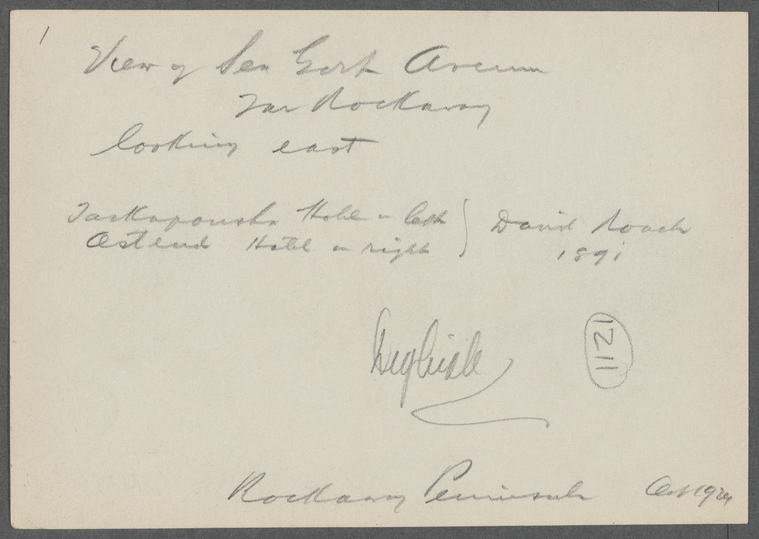 1
View of Sea Girt Avenue
Far Rockaway
looking east
Tackapousha Hotel on left } David Roach
Ostend Hotel on right 1891
1211
Rockaway Peninsula Oct 1924